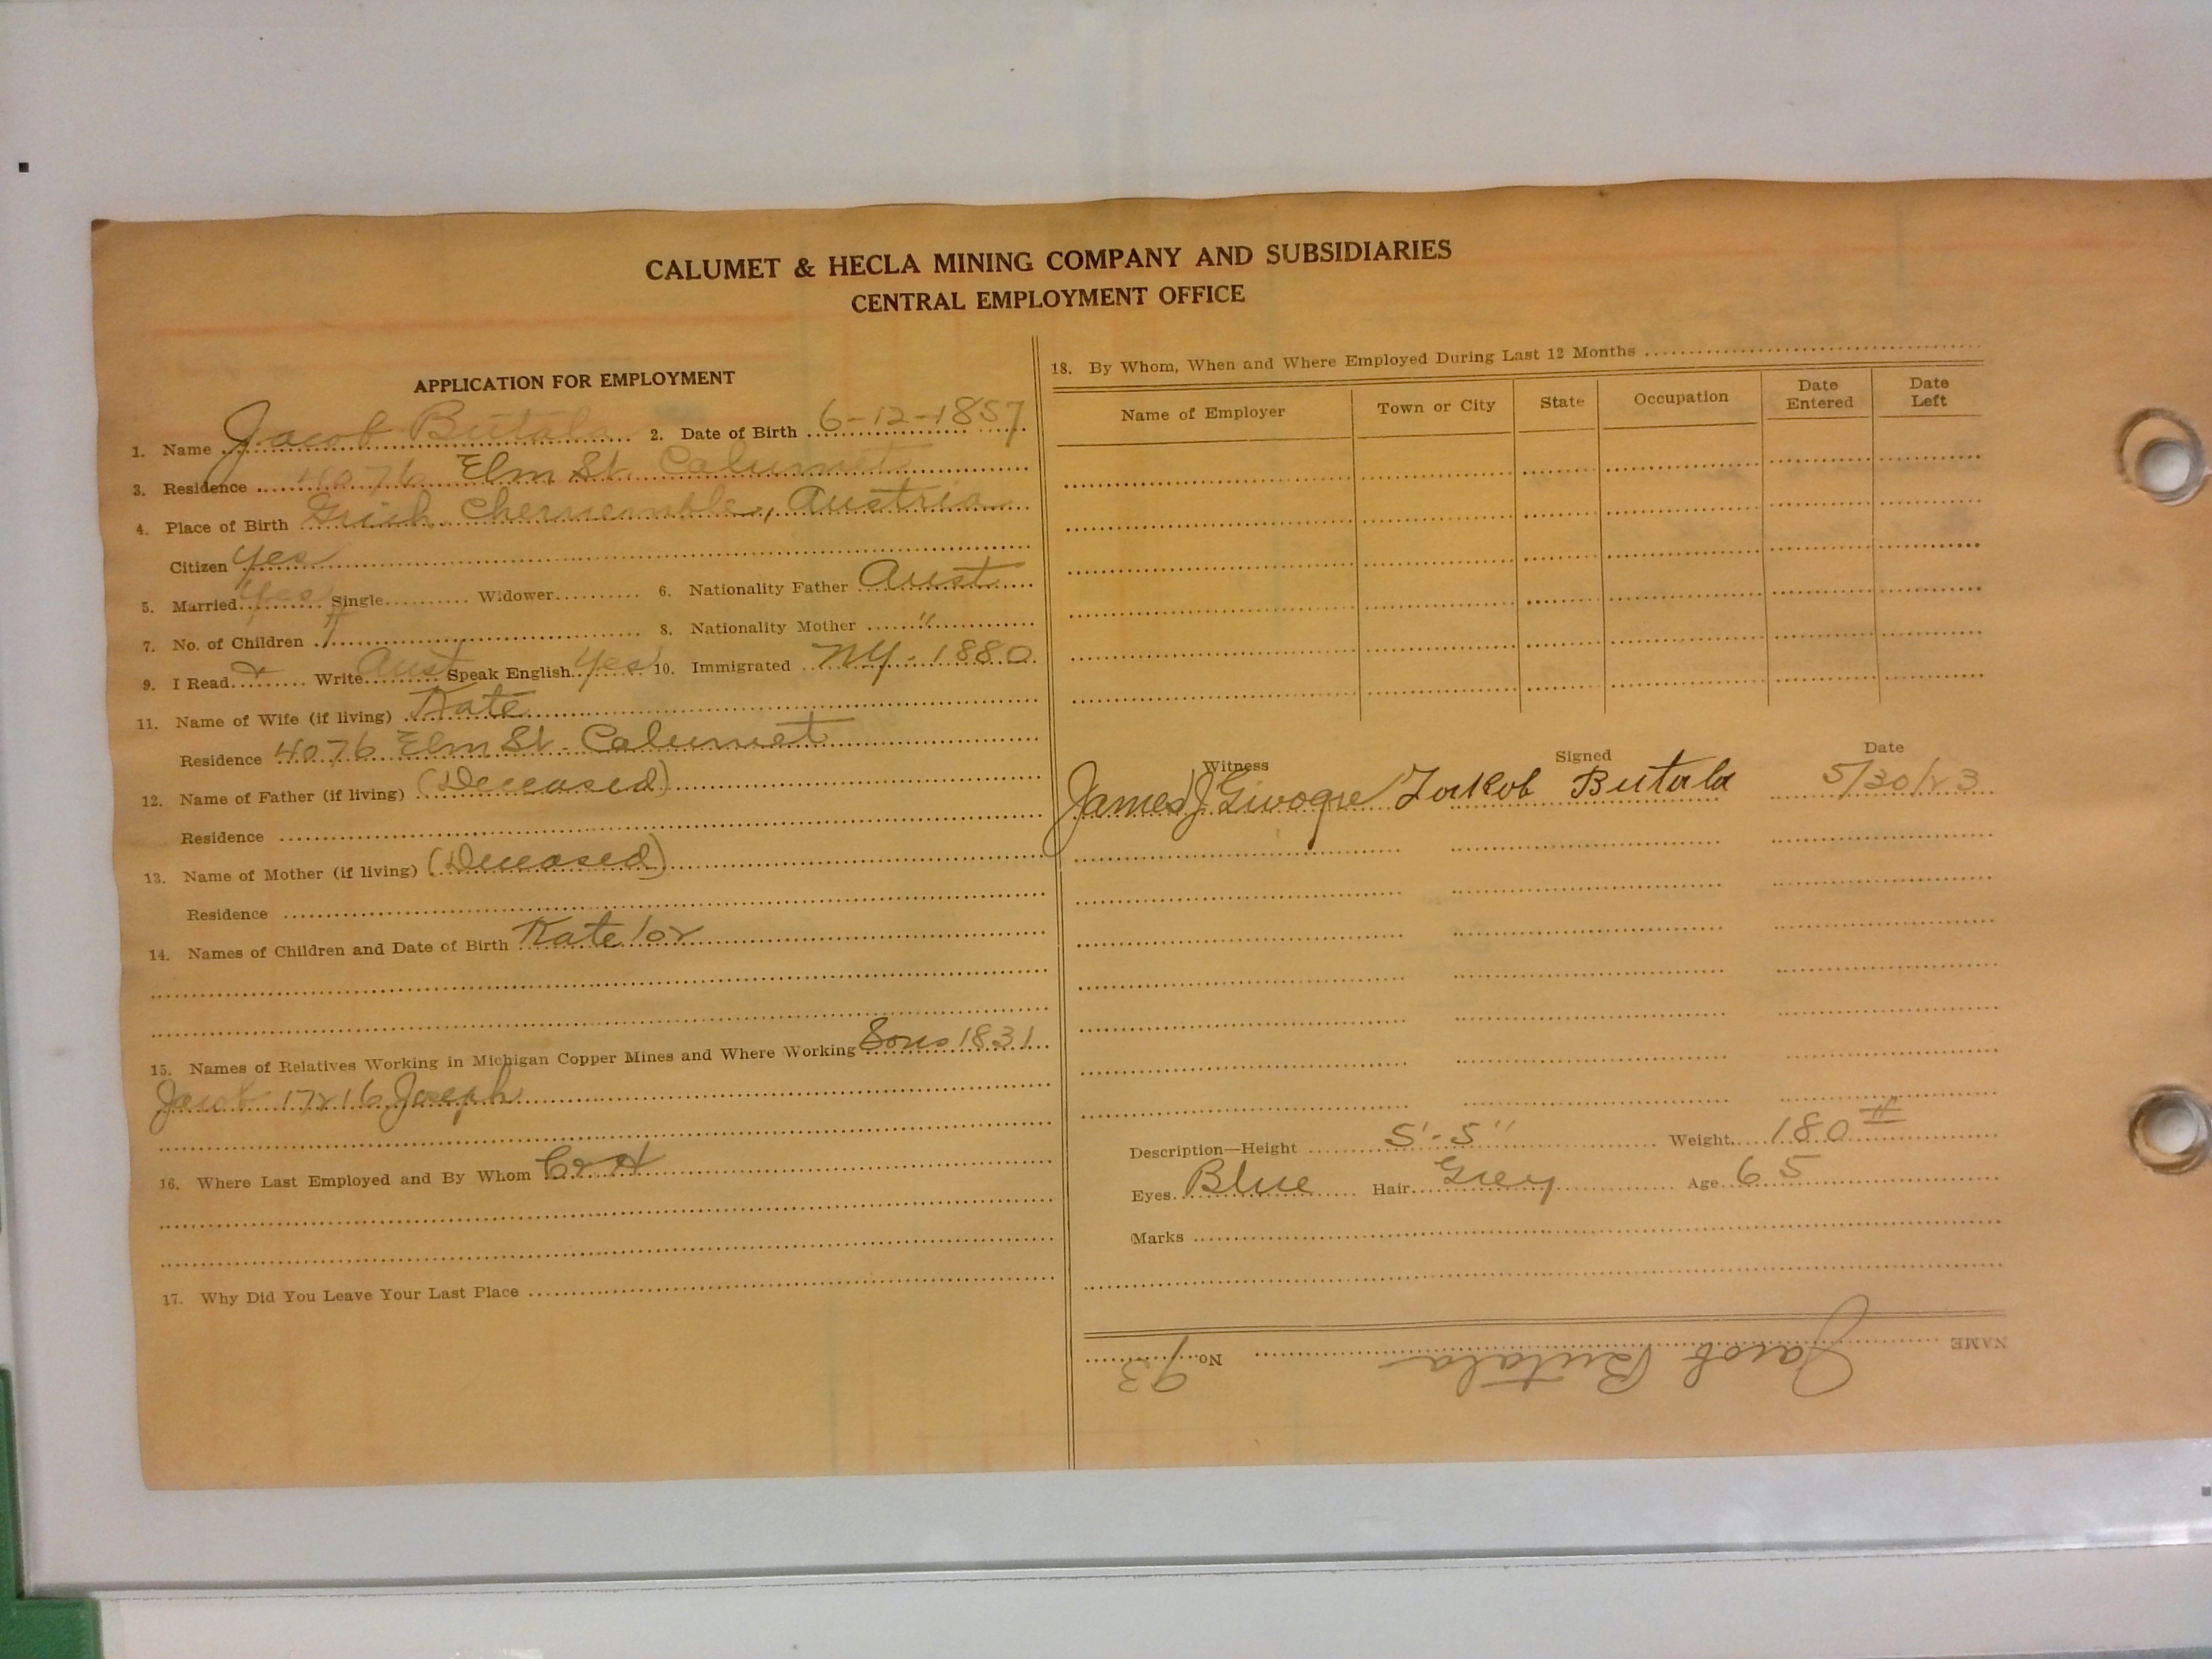 CALUMET & HECLA MINING COMPANY AND SUBSIDIARIES
CENTRAL EMPLOYMENT OFFICE
APPLICATION FOR EMPLOYMENT
1. Name Jacob Butala 2. Date of Birth 6-12-1857
3. Residence 4076 Elm St. Calumet
4. Place of Birth Austria
Citizen Yes
5. Married Yes Single Widower 6. Nationality Father Aust
7. No. of Children 8. Nationality Mother "
9. I Read & Write Aust Speak English Yes 10. Immigrated NY-1880
11. Name of Wife (if living) Kate
Residence 4076 Elm St. Calumet
12. Name of Father (if living) (Deceased)
Residence
13. Name of Mother (if living) (Deceased)
Residence
14. Names of Children and Date of Birth Kate
15. Names of Relatives Working in Michigan Copper Mines and Where Working Sons 1831
Jacob 17216 Joseph
16. Where Last Employed and By Whom C & H
17. Why Did You Leave Your Last Place
18. By Whom, When and Where Employed During Last 12 Months
Name of Employer Town or City State Occupation Date Entered Date Left
Witness Signed Date
James J. Jakob Butala 5/30/23
Description—Height 5'-5" Weight 180 #
Eyes Blue Hair Grey Age 65
Marks
NAME Jacob Butala No. 93